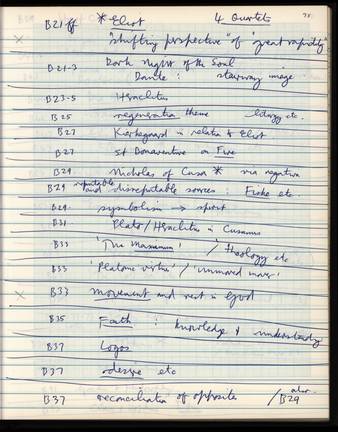 B21ff * Eliot 4 Quartets
"shifting perspective" of "great rapidity"
B21-3 Dark Night of the Soul
Dante : stairway image
B23-5 Heraclitus
B25 regeneration theme etc.
B27 Kierkegaard in relation to Eliot
B27 St Bonaventure on Fire
B29 Nicholas of Cusa * via negativa
B29 reputable and disreputable sources : etc.
B29 symbolism → spirit
B31 Plato/Heraclitus in Cusanus
B33 'The Maximum' / theology etc
B33 'Platonic virtue' / 'unmoved mover'
B33 Movement and rest in God
B35 Faith : knowledge & understanding
B37 Logos
B37 desire etc
B37 reconciliation of opposites / also B29